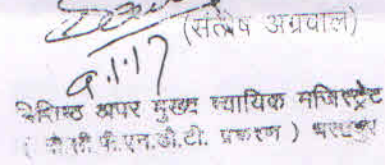 (संतोष अग्रवाल)
9.1.17
विशिष्ठ अपर मुख्य न्यायिक मजिस्ट्रेट
( पी.सी.पी.एन.डी.टी. प्रकरण ) भरतपुर